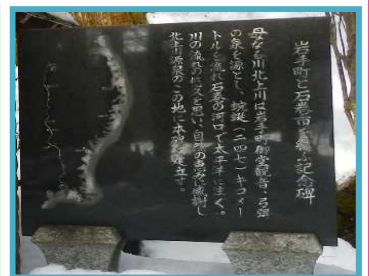 岩手町と石巻市を結ぶ記念碑
母なる川北上川は岩手町御堂観音・弓弭
の泉を源とし、蜿蜒(二四七)キロメー
トルを流れ石巻の河口で太平洋に注ぐ。
川の流れの悠久を思い、自然の恵みに感謝し
北上川源泉のこの地に本碑を建立す。